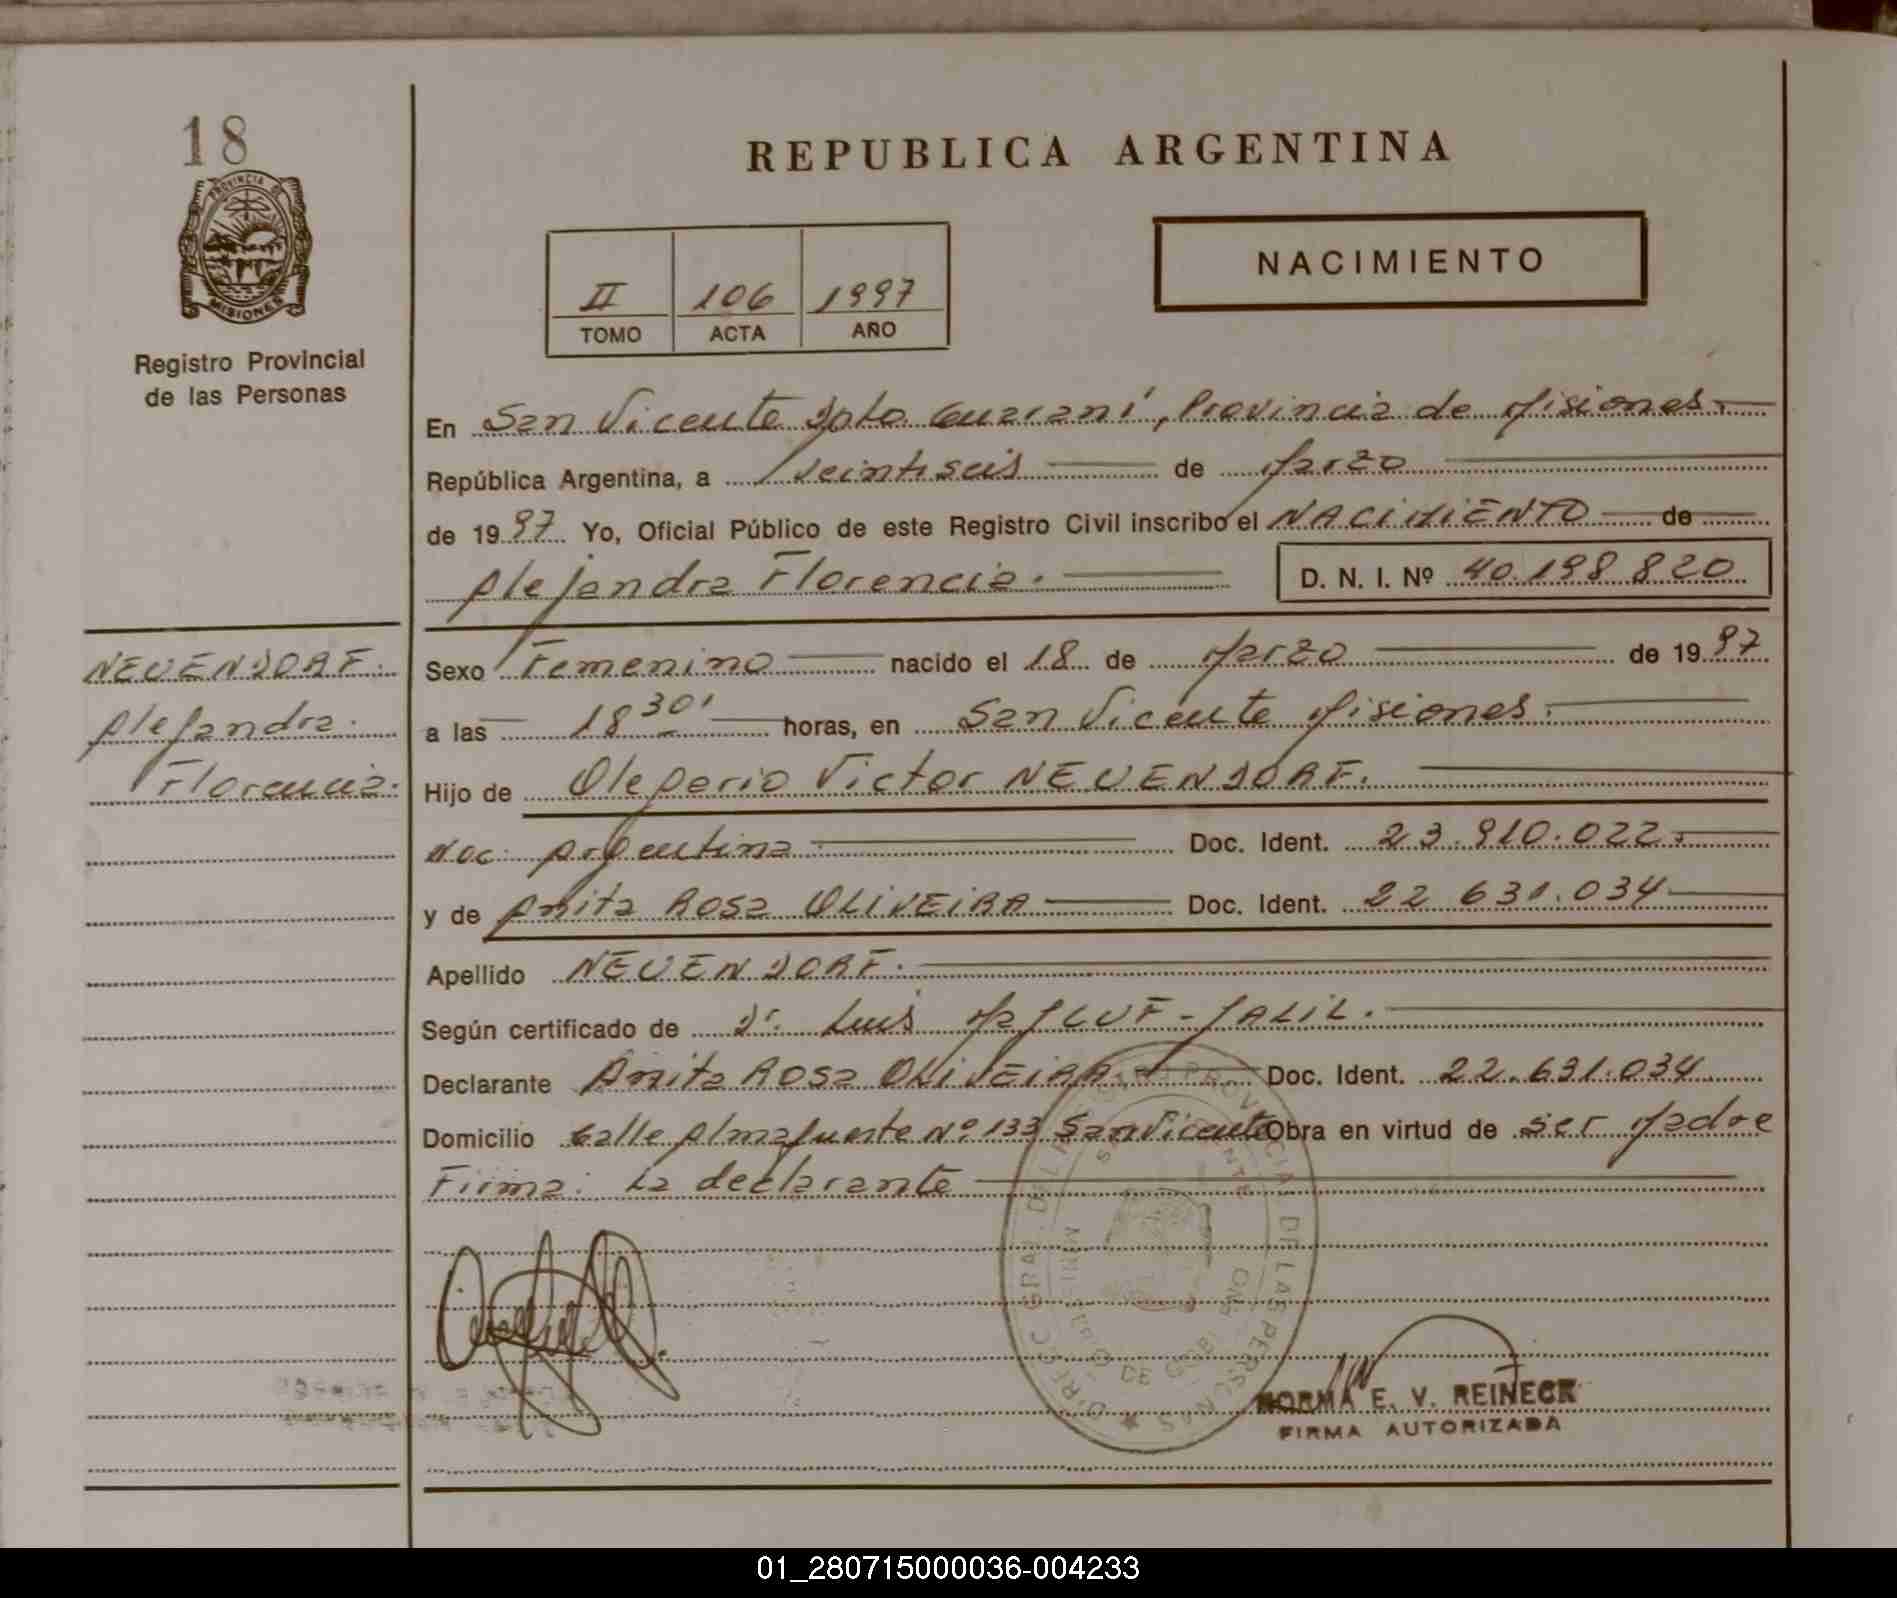 18
PROVINCIA DE
MISIONES
Registro Provincial
de las Personas
REPUBLICA ARGENTINA
II 106 1997
TOMO ACTA AÑO
NACIMIENTO
En San Vicente Dpto. Guaraní, Provincia de Misiones
República Argentina, a veintiseis de Marzo
de 1997 Yo, Oficial Público de este Registro Civil inscribo el NACIMIENTO de
Alejandra Florencia. D. N. I. Nº 40.198.820
NEUENDORF.
Alejandra
Florencia.
Sexo Femenino nacido el 18 de Marzo de 1997
a las 18 30' horas, en San Vicente Misiones.
Hijo de Olegario Victor NEUENDORF.
Nac. Argentina Doc. Ident. 23.910.022.
y de Anita Rosa OLIVEIRA Doc. Ident. 22.631.034
Apellido NEUENDORF.
Según certificado de Dr. Luis MAJLUF-JALIL.
Declarante Anita Rosa OLIVEIRA Doc. Ident. 22.631.034
Domicilio Calle Almafuerte Nº 133 San Vicente Obra en virtud de ser Madre
Firma: La declarante
NORMA E. V. REINECK
FIRMA AUTORIZADA
01_280715000036-004233